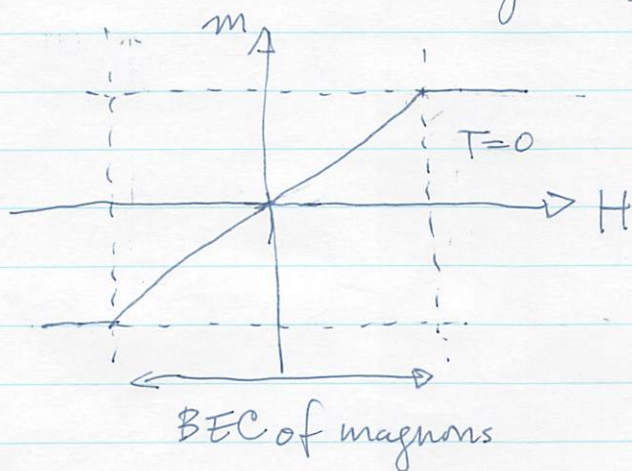 m
T=0
H
BEC of magnons